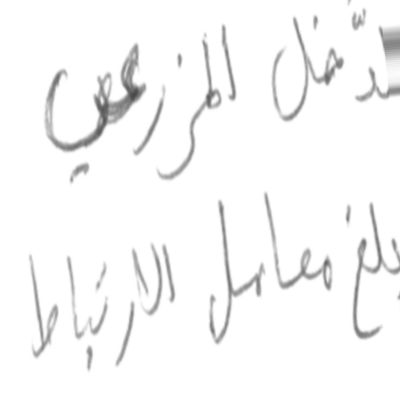 دّخل المزرعي
بلغ معامل الارتباط